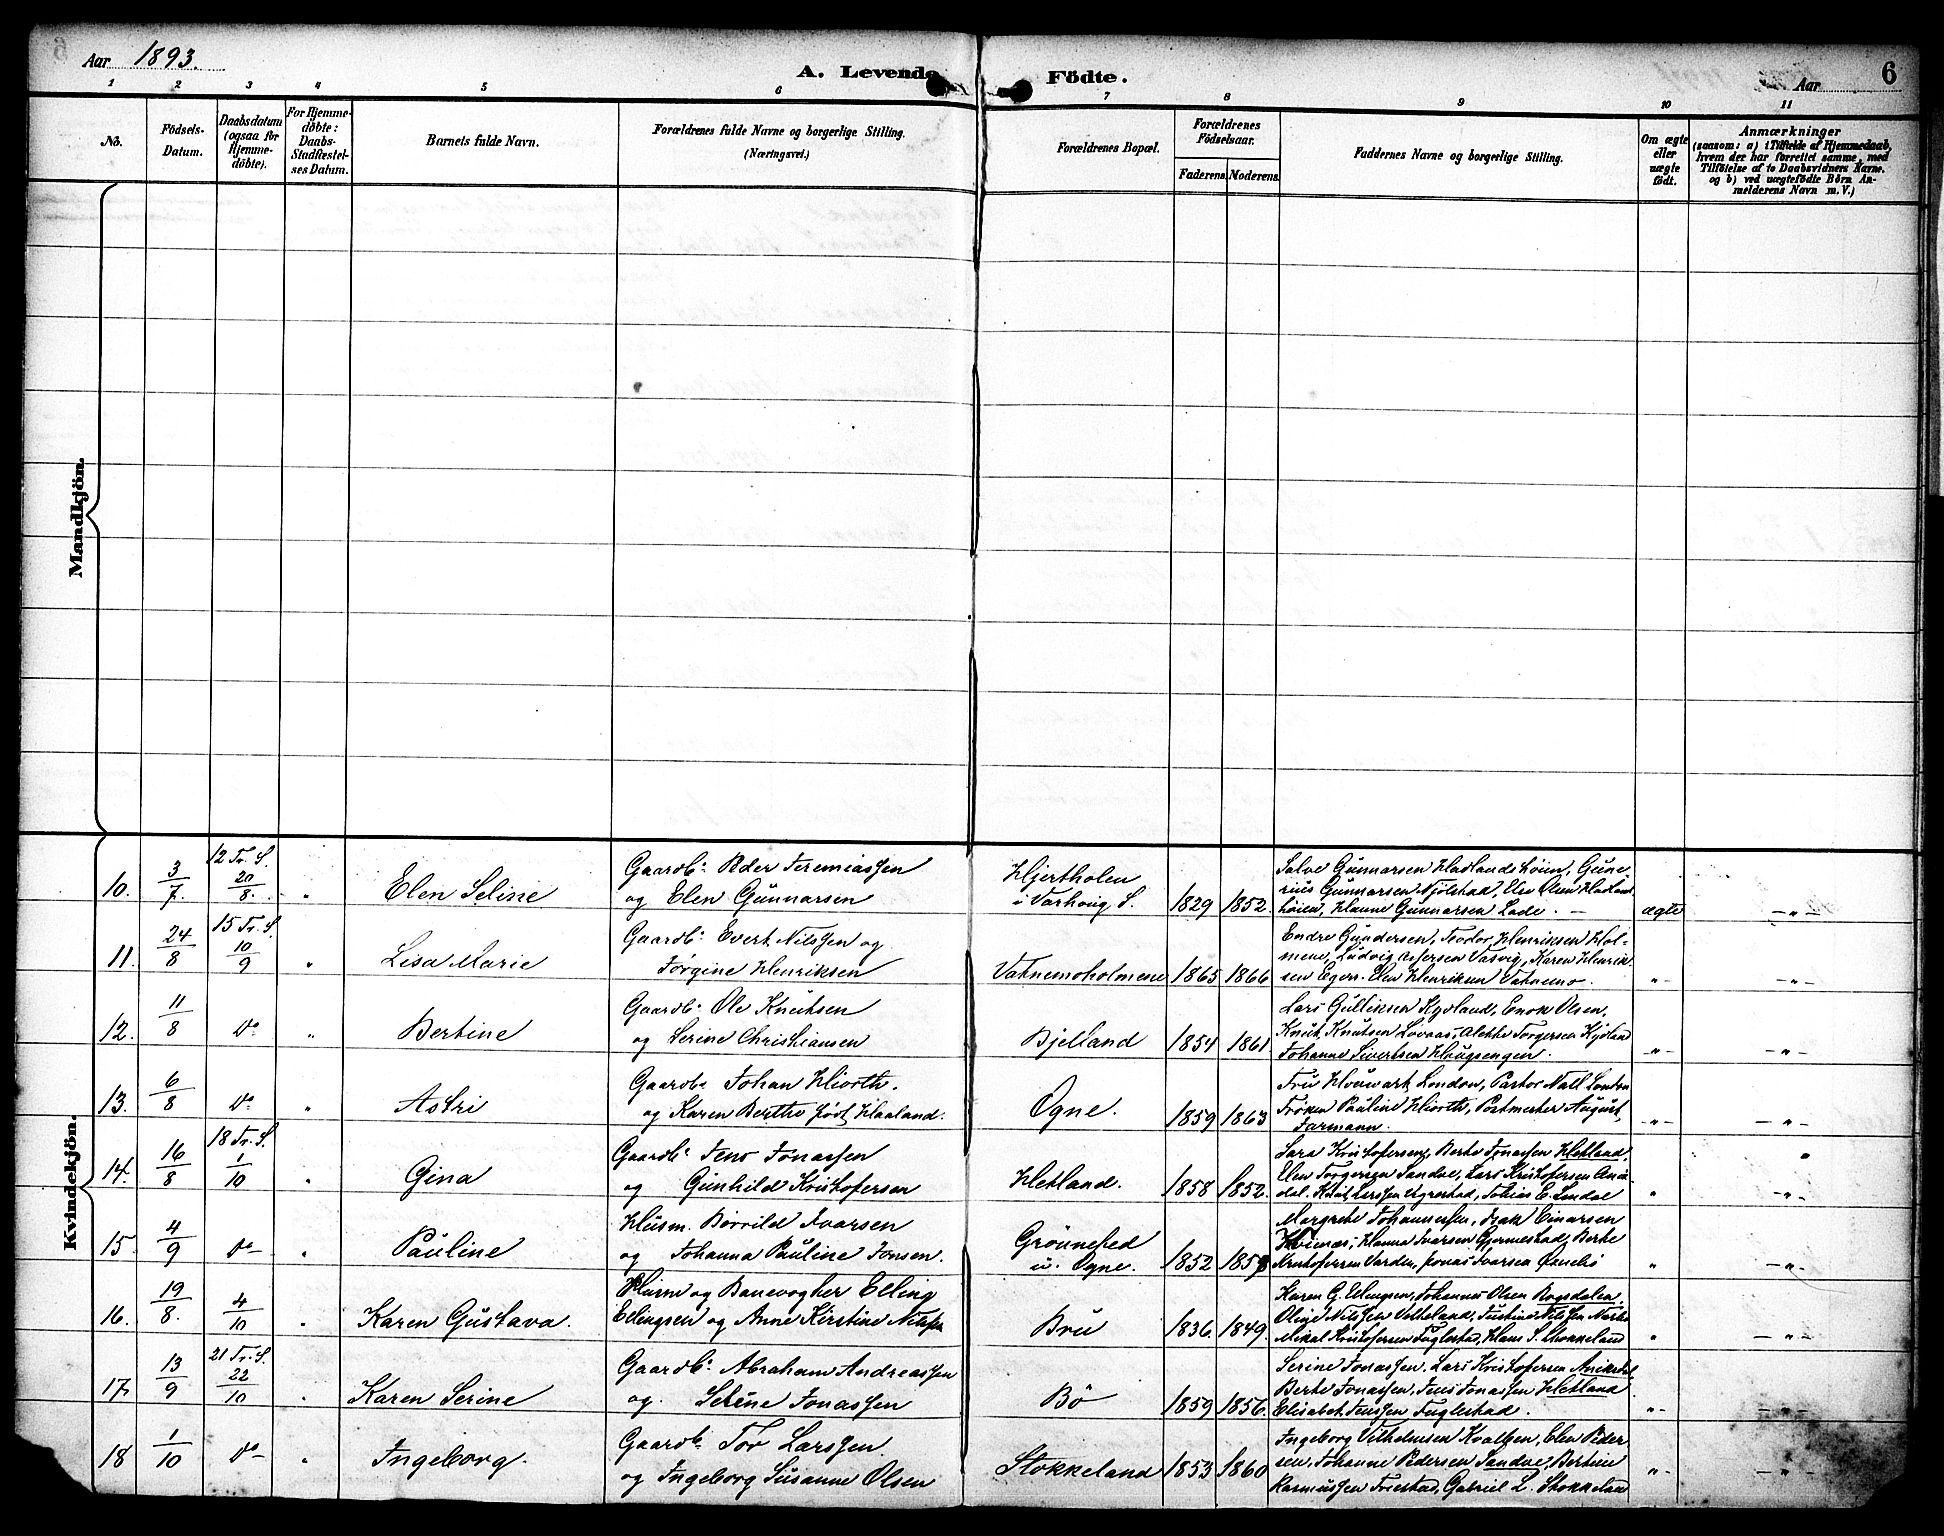 Aar 1893.
A. Levende Födte.
Aar
6
1 2 3 4 5 6 7 8 9 10 11
No.
Födsels-
Datum.
Daabsdatum
(ogsaa for
Hjemme-
döbte).
For Hjemme-
döbte:
Daabs-
Stadfæstel-
ses Datum.
Barnets fulde Navn.
Forældrenes fulde Navne og borgerlige Stilling.
(Næringsvei.)
Forældrenes Bopæl.
Forældrenes
Födselsaar.
Faderens. Moderens.
Faddernes Navne og borgerlige Stilling.
Om ægte
eller
uægte
födt.
Anmærkninger
(saasom: a) i Tilfælde af Hjemmedaab,
hvem der har forrettet samme, med
Tilföielse af to Daabsvidners Navne.
og b) ved uægtefödte Börn An-
melderens Navn m. V.)
Mandkjön.
Kvindekjön.
10. 3/7. 12 Tr. S. 20/8. " Elen Seline
Gaardb: Peder Jeremiassen
og Elen Gunnarsen
Hjertholen
i Varhoug S.
1829 1852.
Salve Gunnarsen Hadlandshöien, Gune-
rius Gunnarsen Njölstad, Else Olsen Hadlands-
höien, Hanne Gunnarsen Lade. —
ægte —"—
11. 24/8 15 Tr. S. 10/9 " Lisa Marie
Gaardb: Evert Nilssen og
Jörgine Henriksen
Vatnemoholmene 1865 1866
Endre Gundersen, Teodor Henriksen Hol-
mene, Ludvig Vasvig, Karen Henrik-
sen Egers. Elen Henriksen Vatnemo.
"- —"—
12. 11/8 Do " Bertine
Gaardb: Ole Knutsen
og Serine Christiansen
Bjelland 1854 1861
Lars Gulliksen Kydland, Enok Olsen,
Knut Knutsen Lovaas, Alette Torgersen Kydland
Johanne Sivertsen Haugsengen.
"- —"—
13. 6/8 Do " Astri
Gaardb: Johan Hiorth.
og Karen Berthe född Haaland.
Ogne. 1859 1863
Fru London, Pastor Nall London
Fröken Pauline Hiorth, Postmester August
Farmann.
"- —"—
14. 16/8 18 Tr. S. 1/10 " Gina
Gaardb: Jens Jonassen
og Gunhild Kristofersen
Hetland. 1858 1852.
Sara Kristofersen, Berte Jonassen Hetland,
Elen Torgersen Sandal, Lars Kristofersen
dal. Larssen Tobias E.
" -"-
15. 4/9 Do— " Pauline
Husm. Börrild Ivarsen
og Johanna Pauline Jonsen.
Grönnested
u. Ogne. 1852 1859
Margrete Johannessen, Isak Einarsen
Hanna Ivarsen Gjermestad, Berte
Kristofersen Varden, Jonas Ivarsen
" —"—
16. 19/8. 4/10 " Karen Gustava.
Husm og Banevogter Elling
Ellingsen og Anne Kirstine Nilssen
Bru 1836. 1849.
Karen G. Ellingsen, Johannes Olsen Bogsdalen
Oline Nilssen Vetteland, Justine Nilssen
Mikal Kristofersen Fuglestad, Hans S. Stokkeland
" —"—
17. 13/9 21 Tr. S. 22/10 " Karen Serine
Gaardb: Abraham Andreassen
og. Serine Jonassen
Bö 1859 1856.
Serine Jonassen, Lars Kristofersen Anisdal
Berte Jonassen, Jens Jonassen Hetland
Elisabet Jenssen Fuglestad.
"- —"—
18 1/10 Do— " Ingeborg.
Gaardb. Tor Larssen.
og Ingeborg Susanne Olsen
Stokkeland 1853 1860
Ingeborg Vilhelmsen Kvalben, Elen Peder-
sen, Johanne Pedersen Sandve, Bertine
Rasmussen Friestad, Gabriel L. Stokkeland
"- —"—